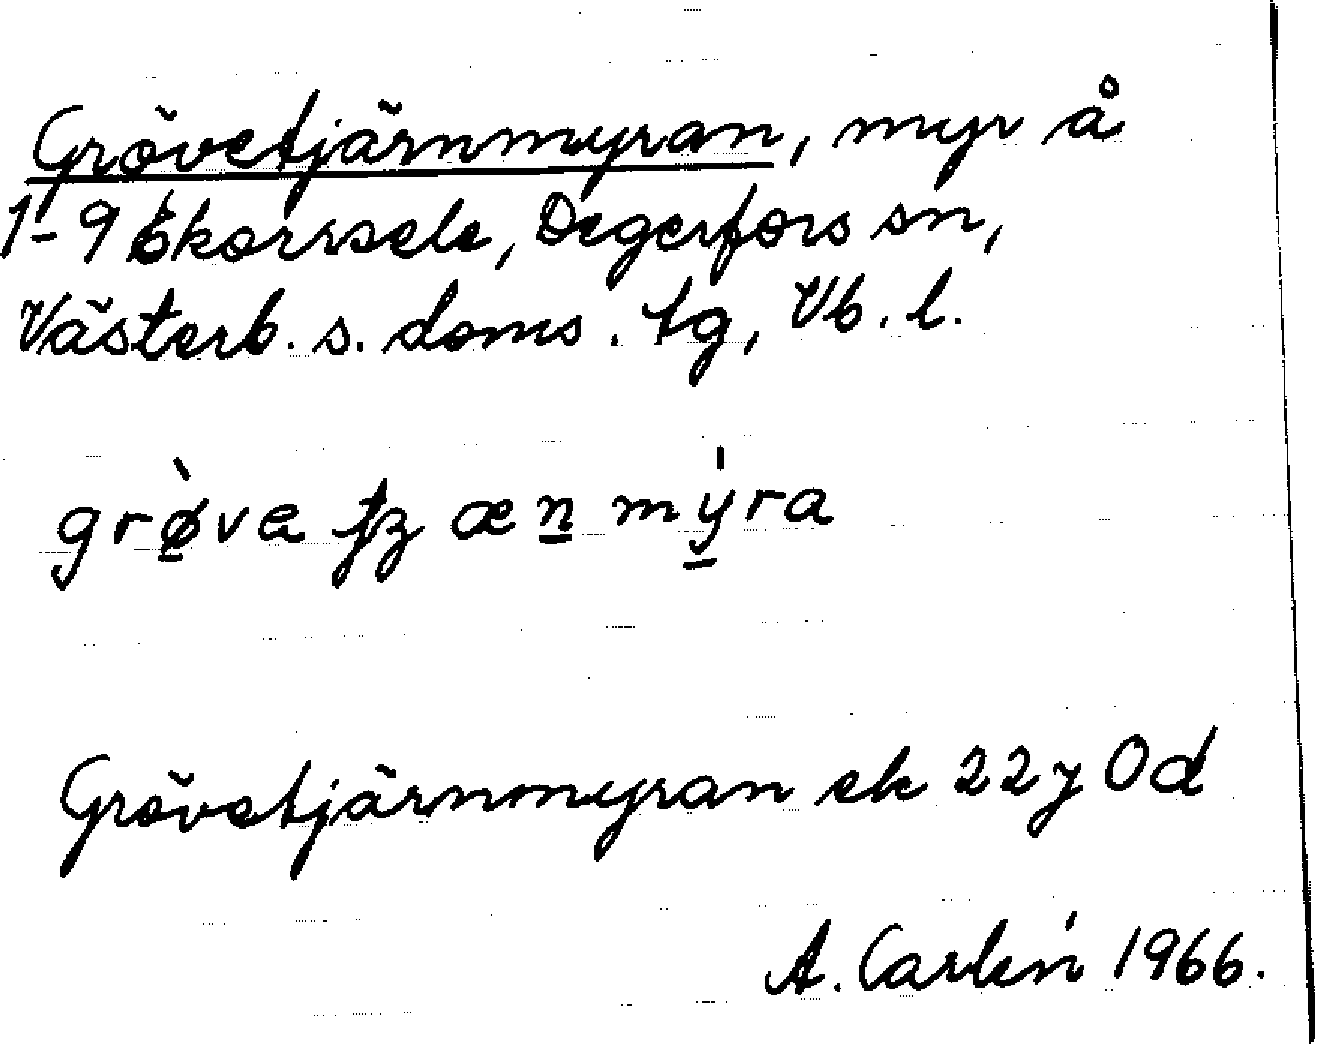 Grövetjärnmyran, myr å
1-9 Ekorrsele, Degerfors sn,
Västerb. s. doms. tg, Vb. l.
grøve ꞇȥ æn mýra
Grövetjärnmyran ek 22 j 0 d
A. Carlén 1966.